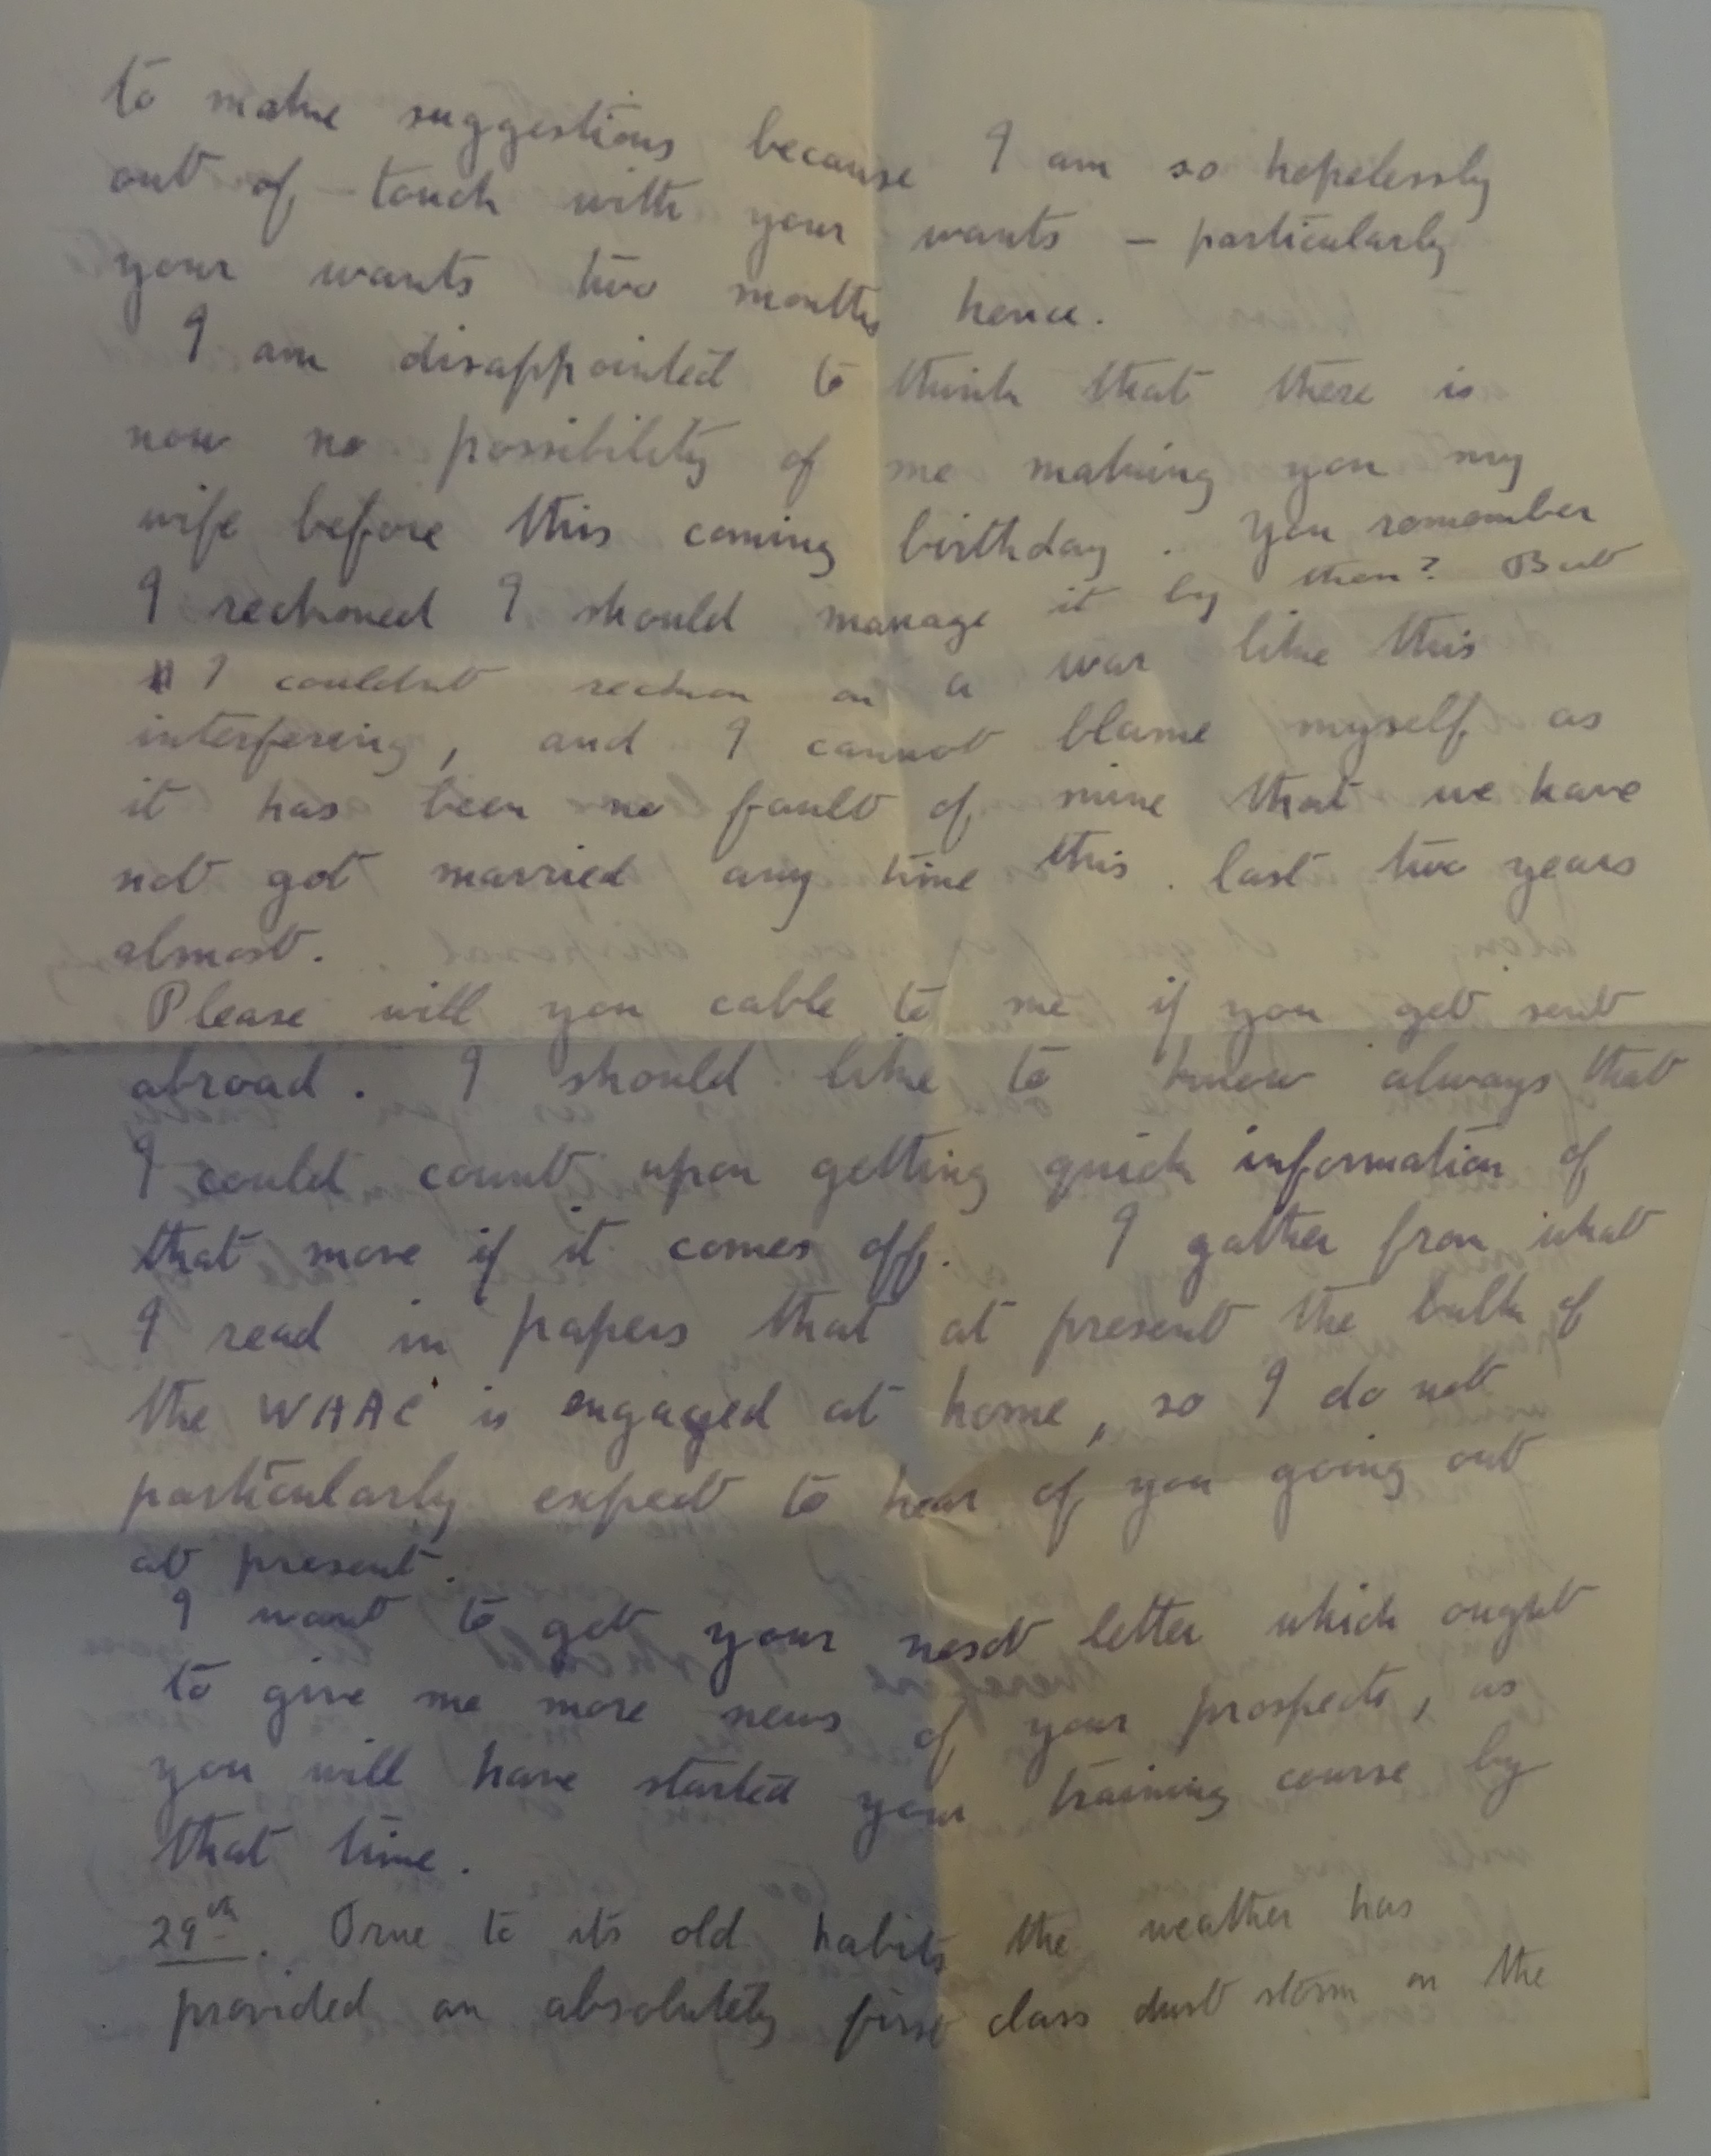 to make suggestions because I am so hopelessly
out of touch with your wants – particularly
your wants two months hence.
I am disappointed to think that there is
now no possibility of me making you my
wife before this coming birthday. You remember
I reckoned I should manage it by then? But
I couldnt reckon on a war like this
interfering, and I cannot blame myself as
it has been no fault of mine that we have
not got married any time this last two years
almost.
Please will you cable to me if you get sent
abroad. I should like to know always that
I could count upon getting quick information of
that move if it comes off. I gather from what
I read in papers that at present the bulk of
the WAAC is engaged at home, so I do not
particularly expect to hear of you going out
at present.
I want to get your next letter which ought
to give me more news of your prospects, as
you will have started your training course by
that time.
29th. True to its old habits the weather has
provided an absolutely first class dust storm on the